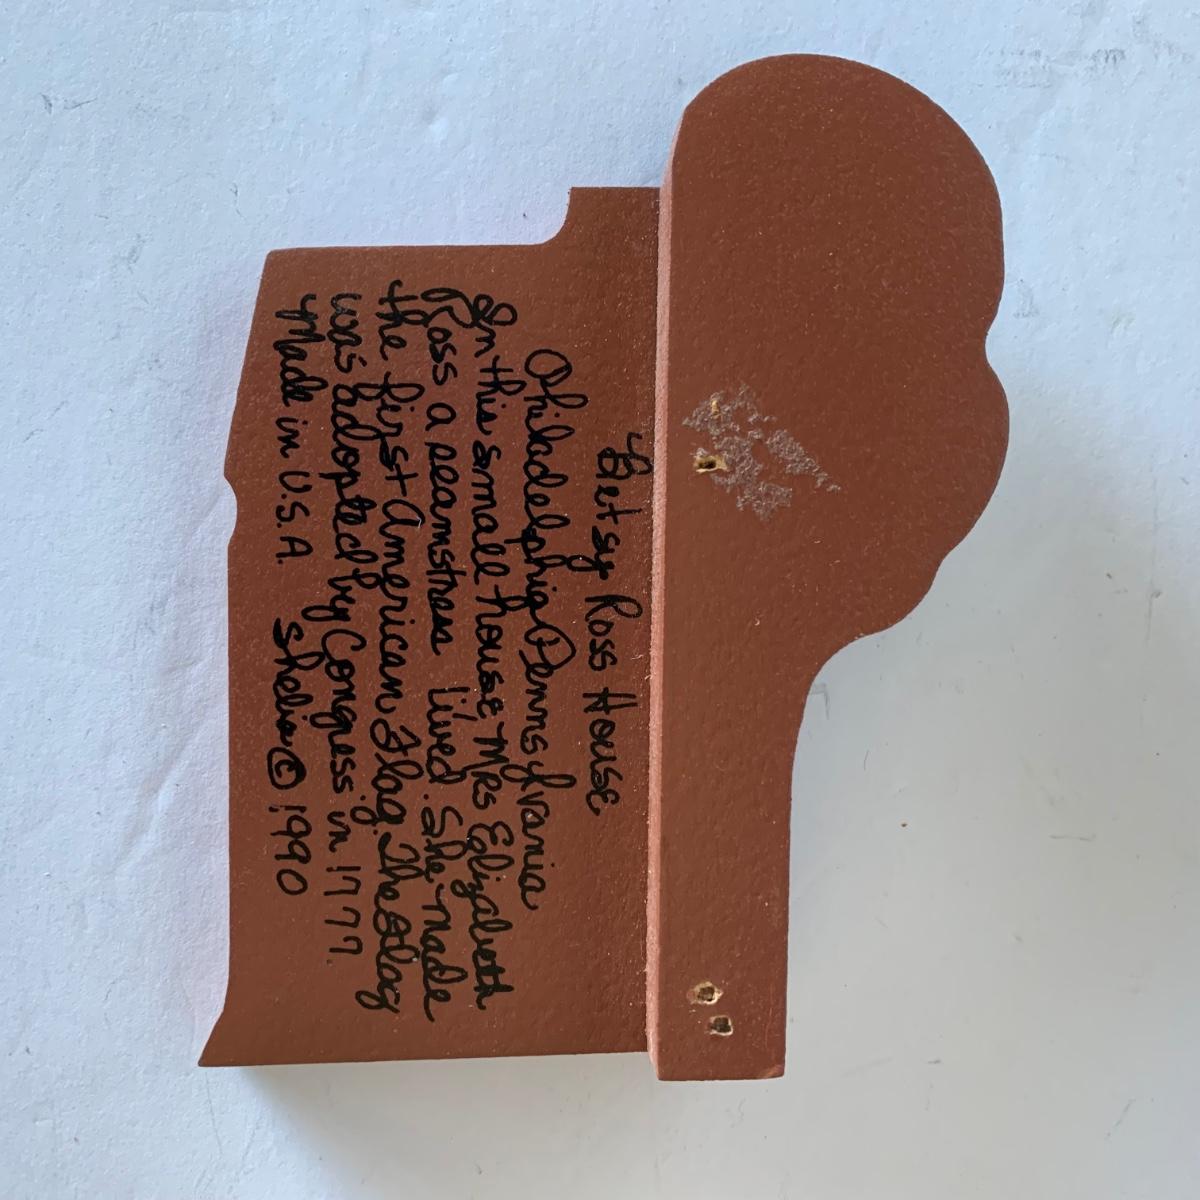 Betsy Ross House
Philadelphia Pennsylvania
In this small house Mrs Elizabeth
Ross a seamstress lived. She made
the first American Flag. The flag
was adopted by Congress in 1777.
Made in U.S.A. Shelia © 1990